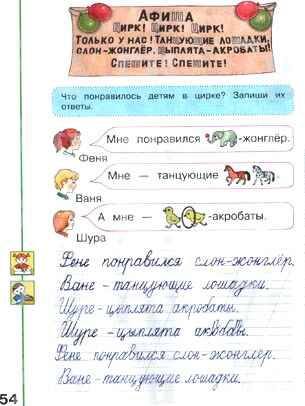 АФИША
ЦИРК! ЦИРК! ЦИРК!
ТОЛЬКО У НАС! ТАНЦУЮЩИЕ ЛОШАДКИ,
СЛОН-ЖОНГЛЁР, ЦЫПЛЯТА-АКРОБАТЫ!
СПЕШИТЕ! СПЕШИТЕ!
Что понравилось детям в цирке? Запиши их
ответы.
Мне понравился -жонглёр.
Феня
Мне — танцующие .
Ваня
А мне — -акробаты.
Шура
Фене понравился слон-жонглёр.
Ване - танцующие лошадки.
Шуре - цыплята акробаты.
Шуре - цыплята акробаты.
Фене понравился слон-жонглёр.
Ване - танцующие лошадки.
54